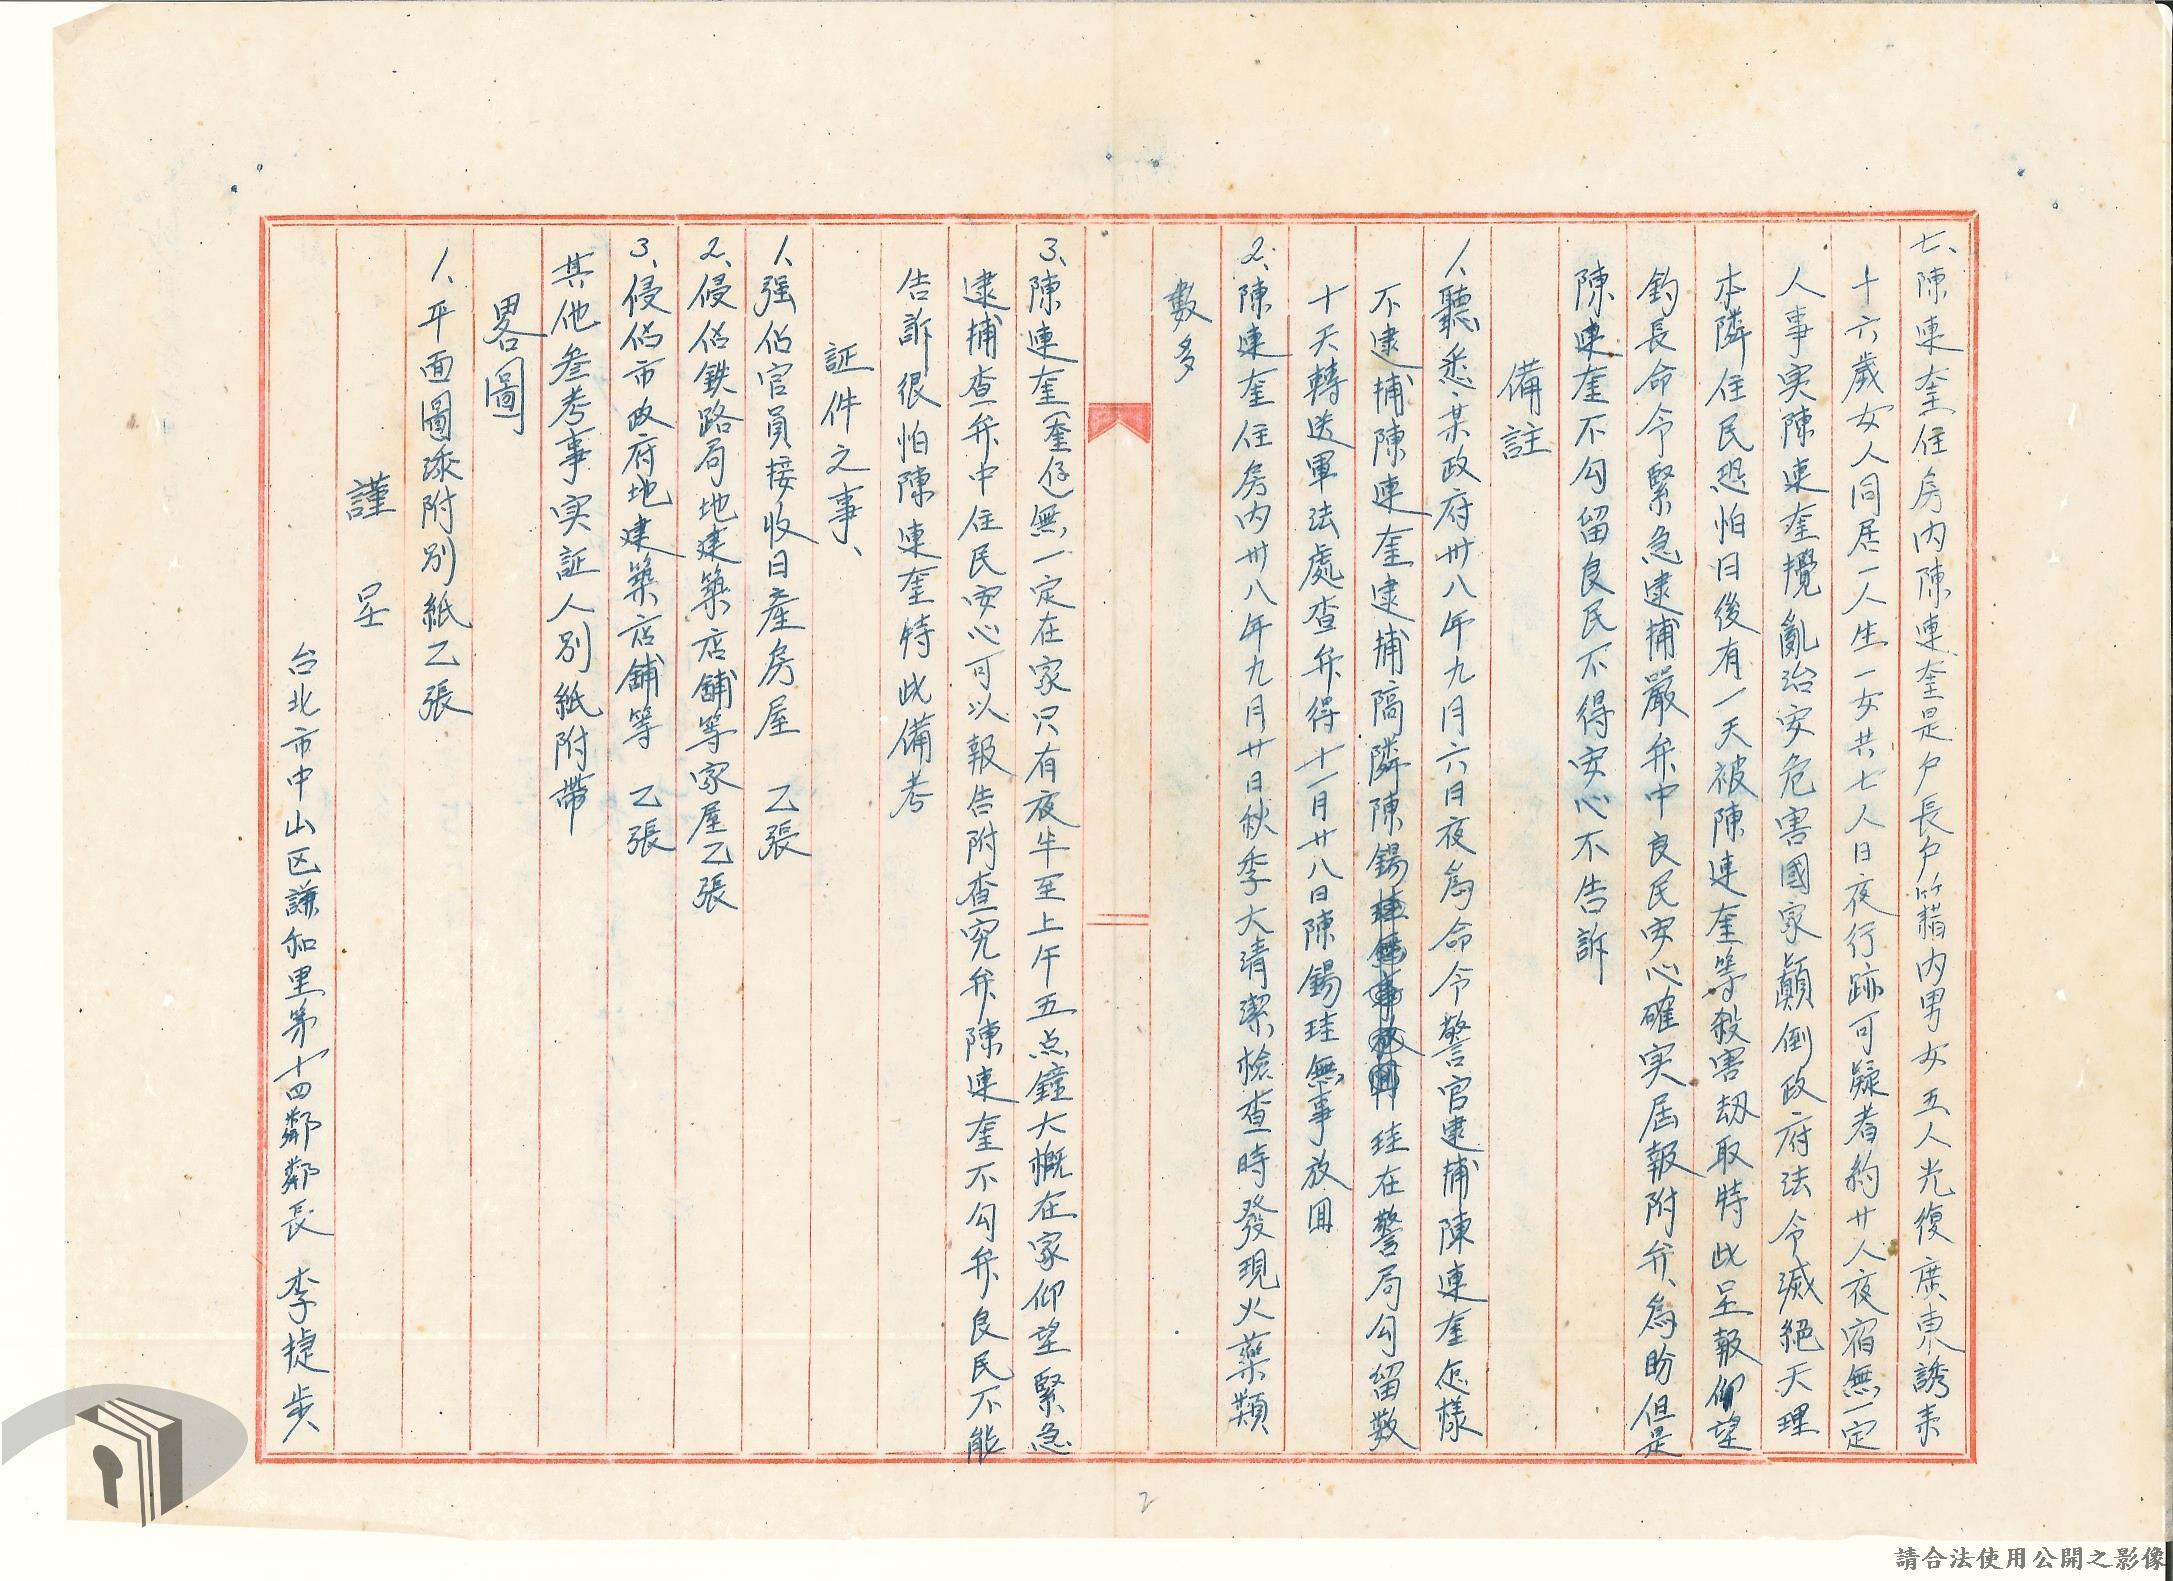 七、陳連奎住房内陳連奎是户長户籍内男女五人光復廣東誘来
十六歲女人同居一人生一女共七人日夜行跡可疑者約廿人夜宿無一定
人事实陳連奎攪亂治安危害國家顛倒政府法令滅絕天理
本隣住民恐怕日後有一天被陳連奎等殺害刼取特此呈報仰望
鈞長命令緊急逮捕嚴弁中良民安心確实居報附弁、為盼但是
陳連奎不勾留良民不得安心不告訴
備註
1、聽悉某政府卅八年九月六日夜為命令警官逮捕陳連奎怎樣
不逮捕陳連奎逮捕隔隣陳錫珪在警局勾留数
十天轉送軍法處查弁得十一月廿八日陳錫珪無事放囬
2、陳連奎住房内卅八年九月廿日秋季大清潔檢查時發現火藥類
數多
3、陳連奎(奎仔)無一定在家只有夜半至上午五点鐘大概在家仰望緊急
逮捕查弁中住民安心可以報告附查究弁陳連奎不勾弁良民不能
告訴很怕陳連奎特此備考
証件之事、
1、强佔官員接收日產房屋 乙張
2、侵佔鉄路局地建築店舖等家屋乙張
3、侵佔市政府地建築店舖等 乙張
其他叁考事实証人別紙附帶
畧圖
1、平面圖添附別紙乙張
謹 呈
台北市中山区謙和里第十四鄰鄰長 李捷步
2
請合法使用公開之影像